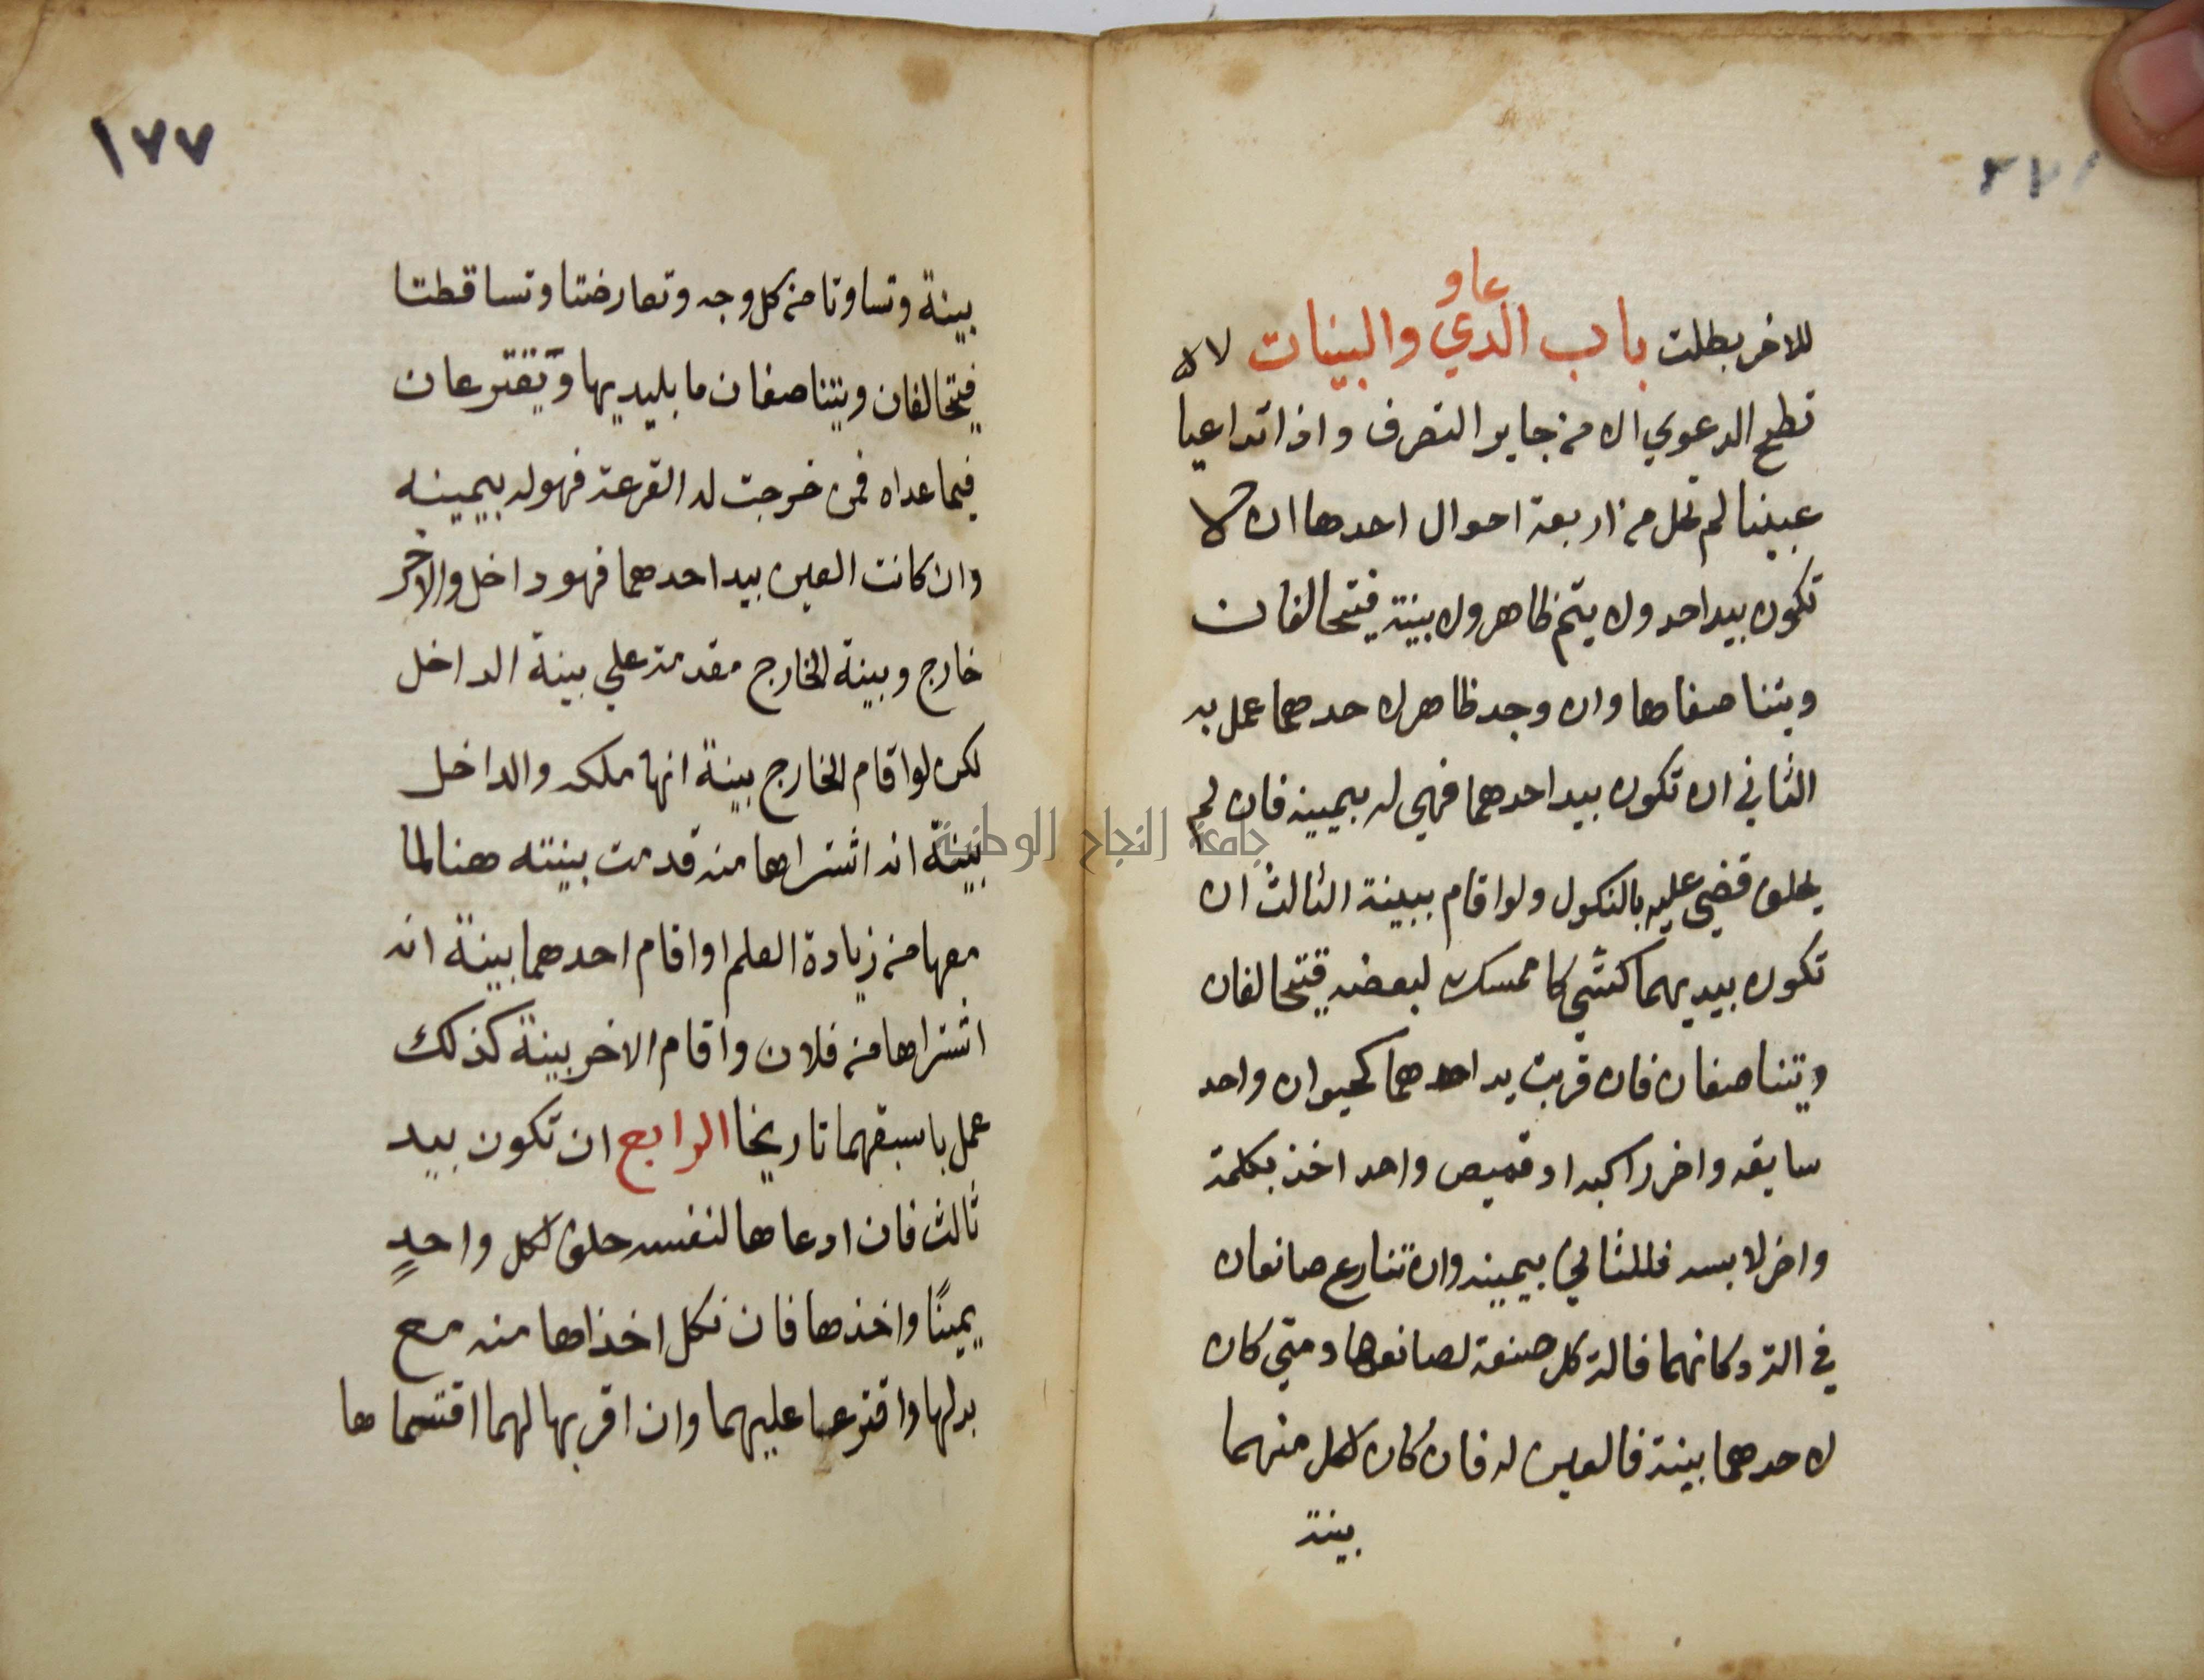 للاخر بطلت باب الدعاوي والبينات لا
تصح الدعوي الا من جايز التصرف واذا تداعيا
عينا لم تخل من اربعة احوال احدها ان لا
تكون بيد احد ولا يتم ظاهر ولا بينة فيتحالفان
ويتناصفاها وان وجد ظاهر لاحدهما عمل به
الثاني ان تكون بيد احدهما فهي له بيمينه فان لم
يحلف قضي عليه بالنكول ولو اقام ببينة الثالث ان
تكون بيديهما كشي كل ممسك لبعضه فيتحالفان
ويتناصفان فان قويت يد احدهما كحيوان واحد
سايقه واخر راكبه او قميص واحد اخذ بكلمة
واخر لابسه فللثاني بيمينه وان تنازع صانعان
في الة دكانهما فالة كل صنعة لصانعها ومتي كان
لاحدهما بينة فالعين له فان كان لكل منهما
بينة
١٧٧
بينة وتساوتا من كل وجه وتعارضتا وتساقطتا
فيتحالفان ويتناصفان ما بايديهما ويقترعان
فيما عداه فمن خرجت له القرعة فهو له بيمينه
وان كانت العين بيد احدهما فهو داخل والاخر
خارج وبينة الخارج مقدمة علي بينة الداخل
لكن لو اقام الخارج بينة انها ملكه والداخل
بينة انه اشتراها منه قدمت بينته هنا لما
معها من زيادة العلم او اقام احدهما بينة انه
اشتراها من فلان واقام الاخر بينة كذلك
عمل باسبقهما تاريخا الرابع ان تكون بيد
ثالث فان ادعاها لنفسه حلف لكل واحدٍ
يمينًا واخذها فان نكل اخذاها منه مع
بدلها واقترعا عليهما وان اقر بها لهما اقتسماها
جامعة النجاح الوطنية